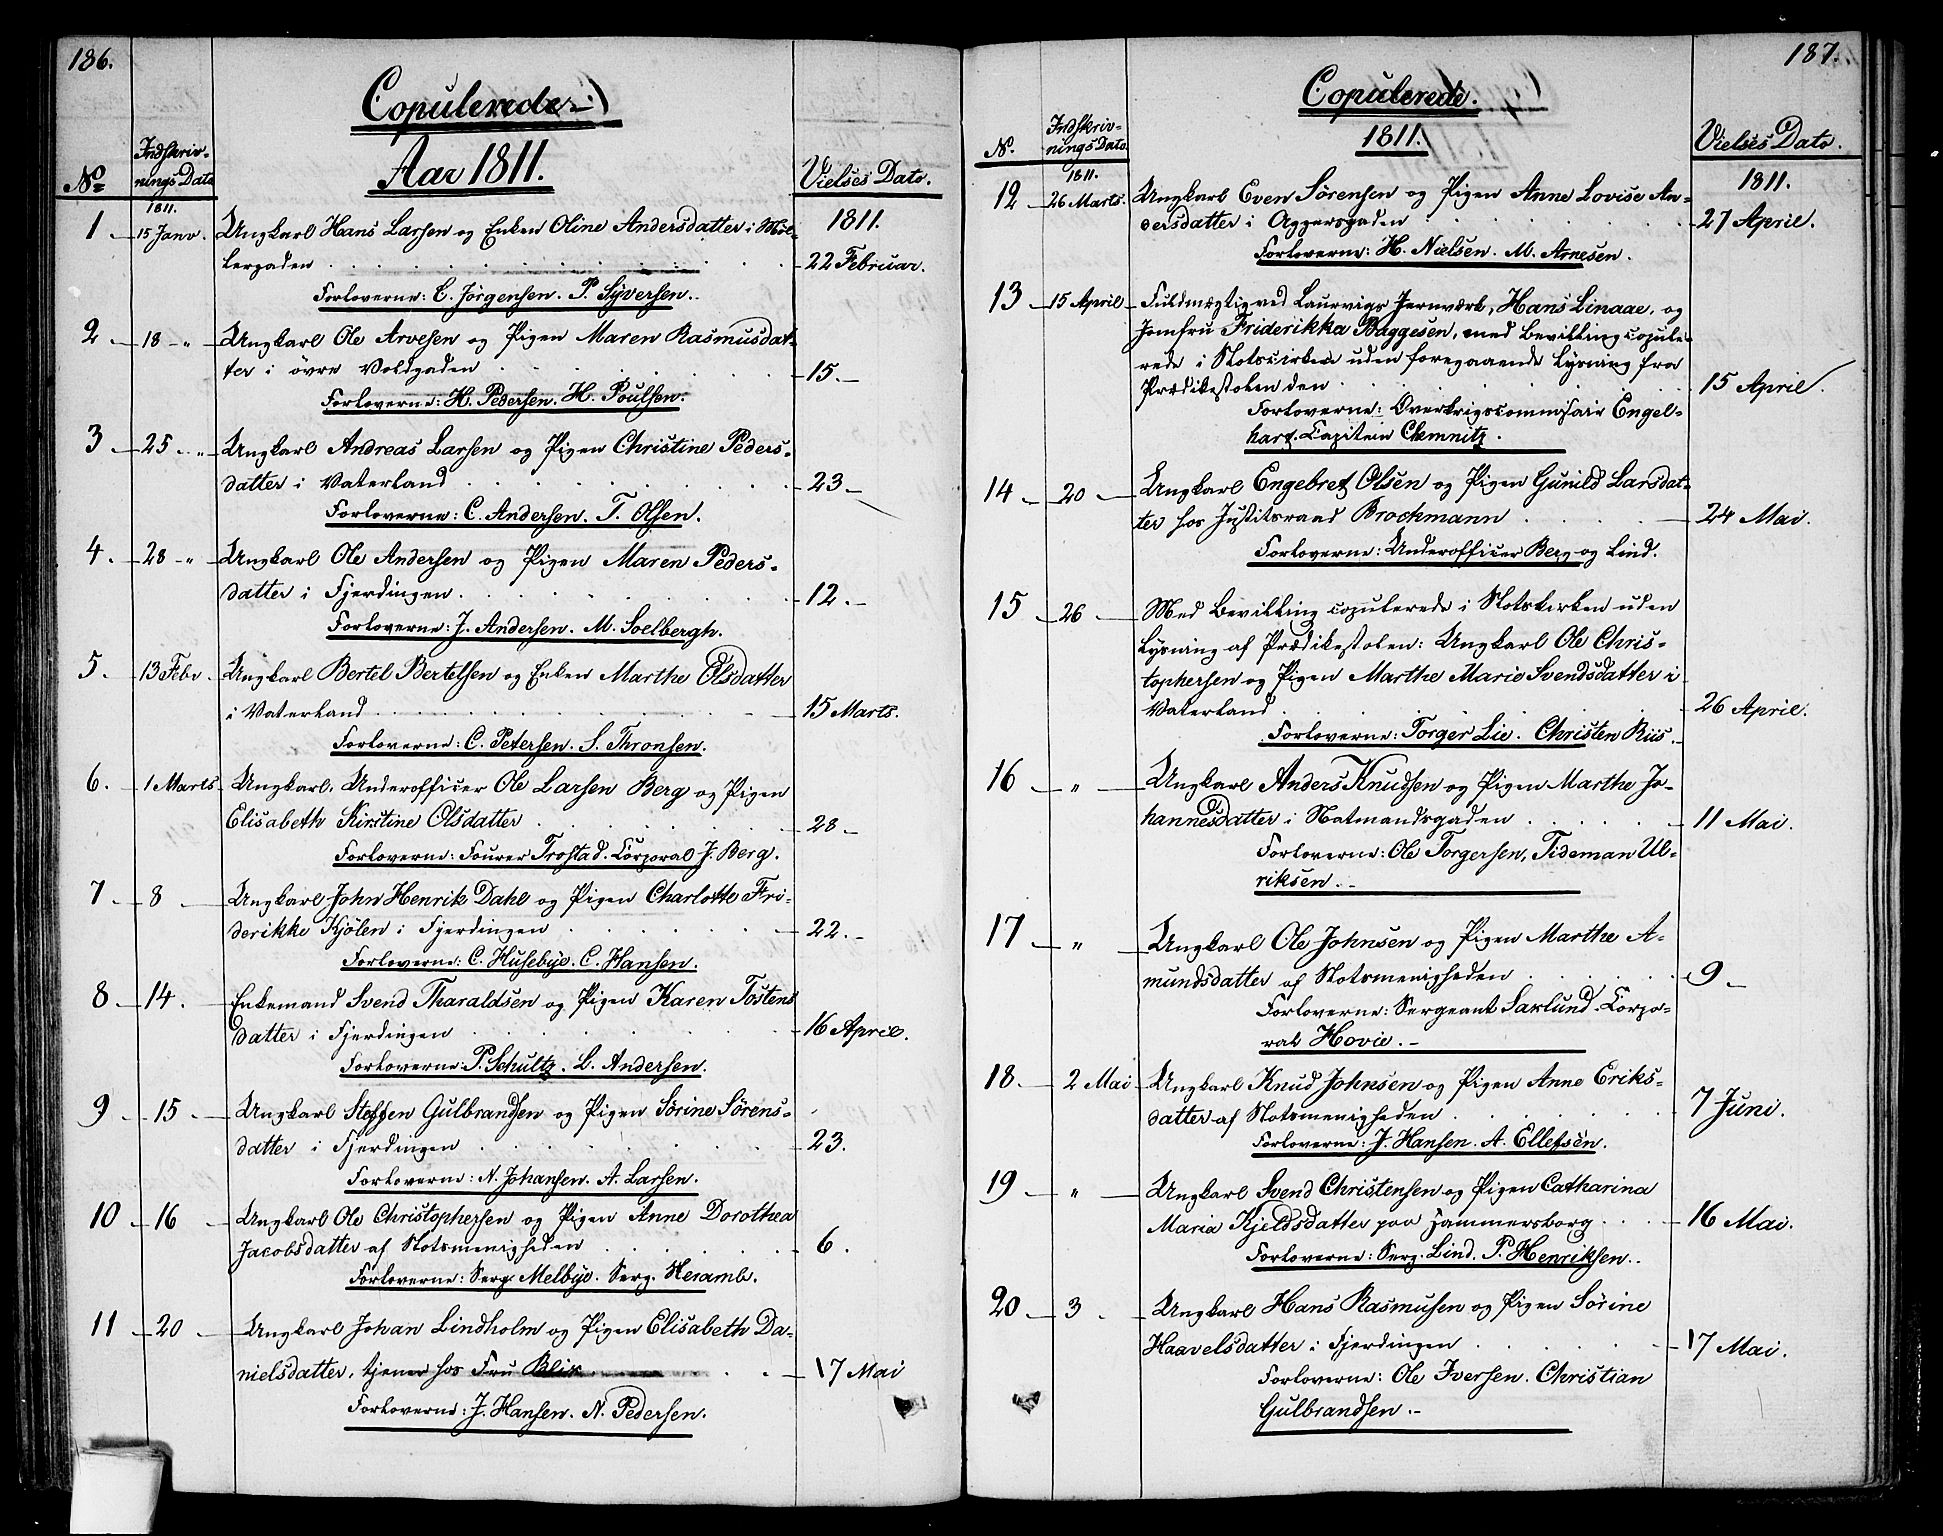 186.
Copulerede
Aar 1811.
No
Indskriv-
nings Dato
Vielses Dato.
1811.
1811.
1 15 Janv. Ungkarl Hans Larsen og Enken Oline Andersdatter i Møl-
lergaden 22 Februar.
Forloverne: C. Jörgensen. P. Syversen.
2 18 " Ungkarl Ole Arvesen og Pigen Maren Rasmusdat-
ter i övre Voldgaden 15.
Forloverne: H. Pedersen. H. Poulsen.
3 25 " Ungkarl Andreas Larsen og Pigen Christine Peders-
datter i Vaterland 23
Forloverne: C. Andersen. T. Olsen.
4. 28 " Ungkarl Ole Andersen og Pigen Maren Peders-
datter i Fjerdingen. 12.
Forloverne: J. Andersen. M. Soelbergh.
5. 13 Febr. Ungkarl Bertel Bertelsen og Enken Marthe Olsdatter
i Vaterland 15 Marts.
Forloverne: C. Petersen. S. Thronsen.
6. 1 Marts Ungkarl, Underofficer Ole Larsen Berg og Pigen
Elisabeth Kirstine Olsdatter 28
Forloverne: Fourer Trostad. Corporal J. Berg.
7 8 Ungkarl John Henrik Dahl og Pigen Charlotte Fri-
derikke Kjölen i Fjerdingen 22.
Forloverne: C. Husebye. C. Hansen.
8 14. Enkemand Svend Tharaldsen og Pigen Karen Tostens
datter i Fjerdingen 16 April.
Forloverne: P. Schultz. L. Andersen.
9 15 Ungkarl Steffen Gulbrandsen og Pigen Sörine Sörens-
datter i Fjerdingen 23.
Forloverne: N. Johansen. A. Larsen.
10 16 Ungkarl Ole Christophersen og Pigen Anne Dorothea
Jacobsdatter af Slotsmenigheden 6.
Forloverne: Serg. Melbye. Serg. Heramb.
11 20 Ungkarl Johan Lindholm og Pigen Elisabeth Da-
nielsdatter, tjener hos Fru Blix 17 Mai
Forloverne: J. Hansen. N. Pedersen.
187.
Copulerede.
1811.
N.
Indskriv-
nings Dato.
Vielses Dato.
1811.
1811.
12 26 Marts. Ungkarl Even Sörensen og Pigen Anne Lovise An-
dersdatter i Aggersgaden 27 April.
Forloverne: H. Nielsen. M. Arnesen.
13 15 April Fuldmægtig ved Laurvigs Jernværk, Hans Linaae, og
Jomfru Friderikka Baggesen, med Bevilling copule-
rede i Slotskirken uden foregaaende Lysning fra
Prædikestolen den 15 April.
Forloverne: Overkrigscommisair Engel-
hart. Capitein Chemnitz.
14 20 Ungkarl Engebret Olsen og Pigen Gunild Larsdat-
ter hos Justitsraad Brockmann 24 Mai.
Forloverne: Underofficer Berg og Lind.
15 26 Med Bevilling copulerede i Slotskirken uden
Lysning af Prædikestolen: Ungkarl Ole Chris-
tophersen og Pigen Marthe Marie Svendsdatter i
Vaterland 26 April.
Forloverne: Torger Lie. Christen Riis.
16 " Ungkarl Anders Knudsen og Pigen Marthe Jo-
hannesdatter i Natmandsgaden 11 Mai.
Forloverne: Ole Torgersen, Tideman Ul-
riksen.
17 " Ungkarl Ole Johnsen og Pigen Marthe A-
mundsdatter af Slotsmenigheden 9
Forloverne: Sergeant Saxlund. Corpo-
ral Hovie.
18. 2 Mai Ungkarl Knud Johnsen og Pigen Anne Eriks-
datter af Slotsmenigheden 7 Juni.
Forloverne: J. Hansen. A. Ellefsen.
19 " Ungkarl Svend Christensen og Pigen Catharina
Maria Kjeldsdatter paa Hammersborg 16 Mai.
Forloverne: Serg. Lind. P. Henriksen.
20 3 Ungkarl Hans Rasmusen og Pigen Sörine
Haavelsdatter i Fjerdingen 17 Mai.
Forloverne: Ole Iversen. Christian
Gulbrandsen.